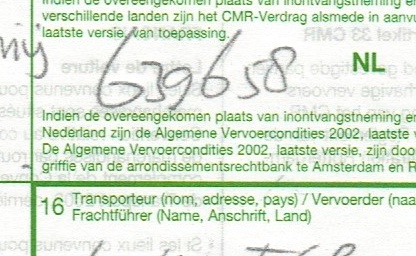 Indien de overeengekomen plaats van inontvangstneming en
verschillende landen zijn het CMR-Verdrag alsmede in aanv
laatste versie, van toepassing.
639658
NL
Indien de overeengekomen plaats van inontvangstneming en
Nederland zijn de Algemene Vervoercondities 2002, laatste v
De Algemene Vervoercondities 2002, laatste versie, zijn doo
griffie van de arrondissementsrechtbank te Amsterdam en R
16 Transporteur (nom, adresse, pays) / Vervoerder (naa
Frachtführer (Name, Anschrift, Land)